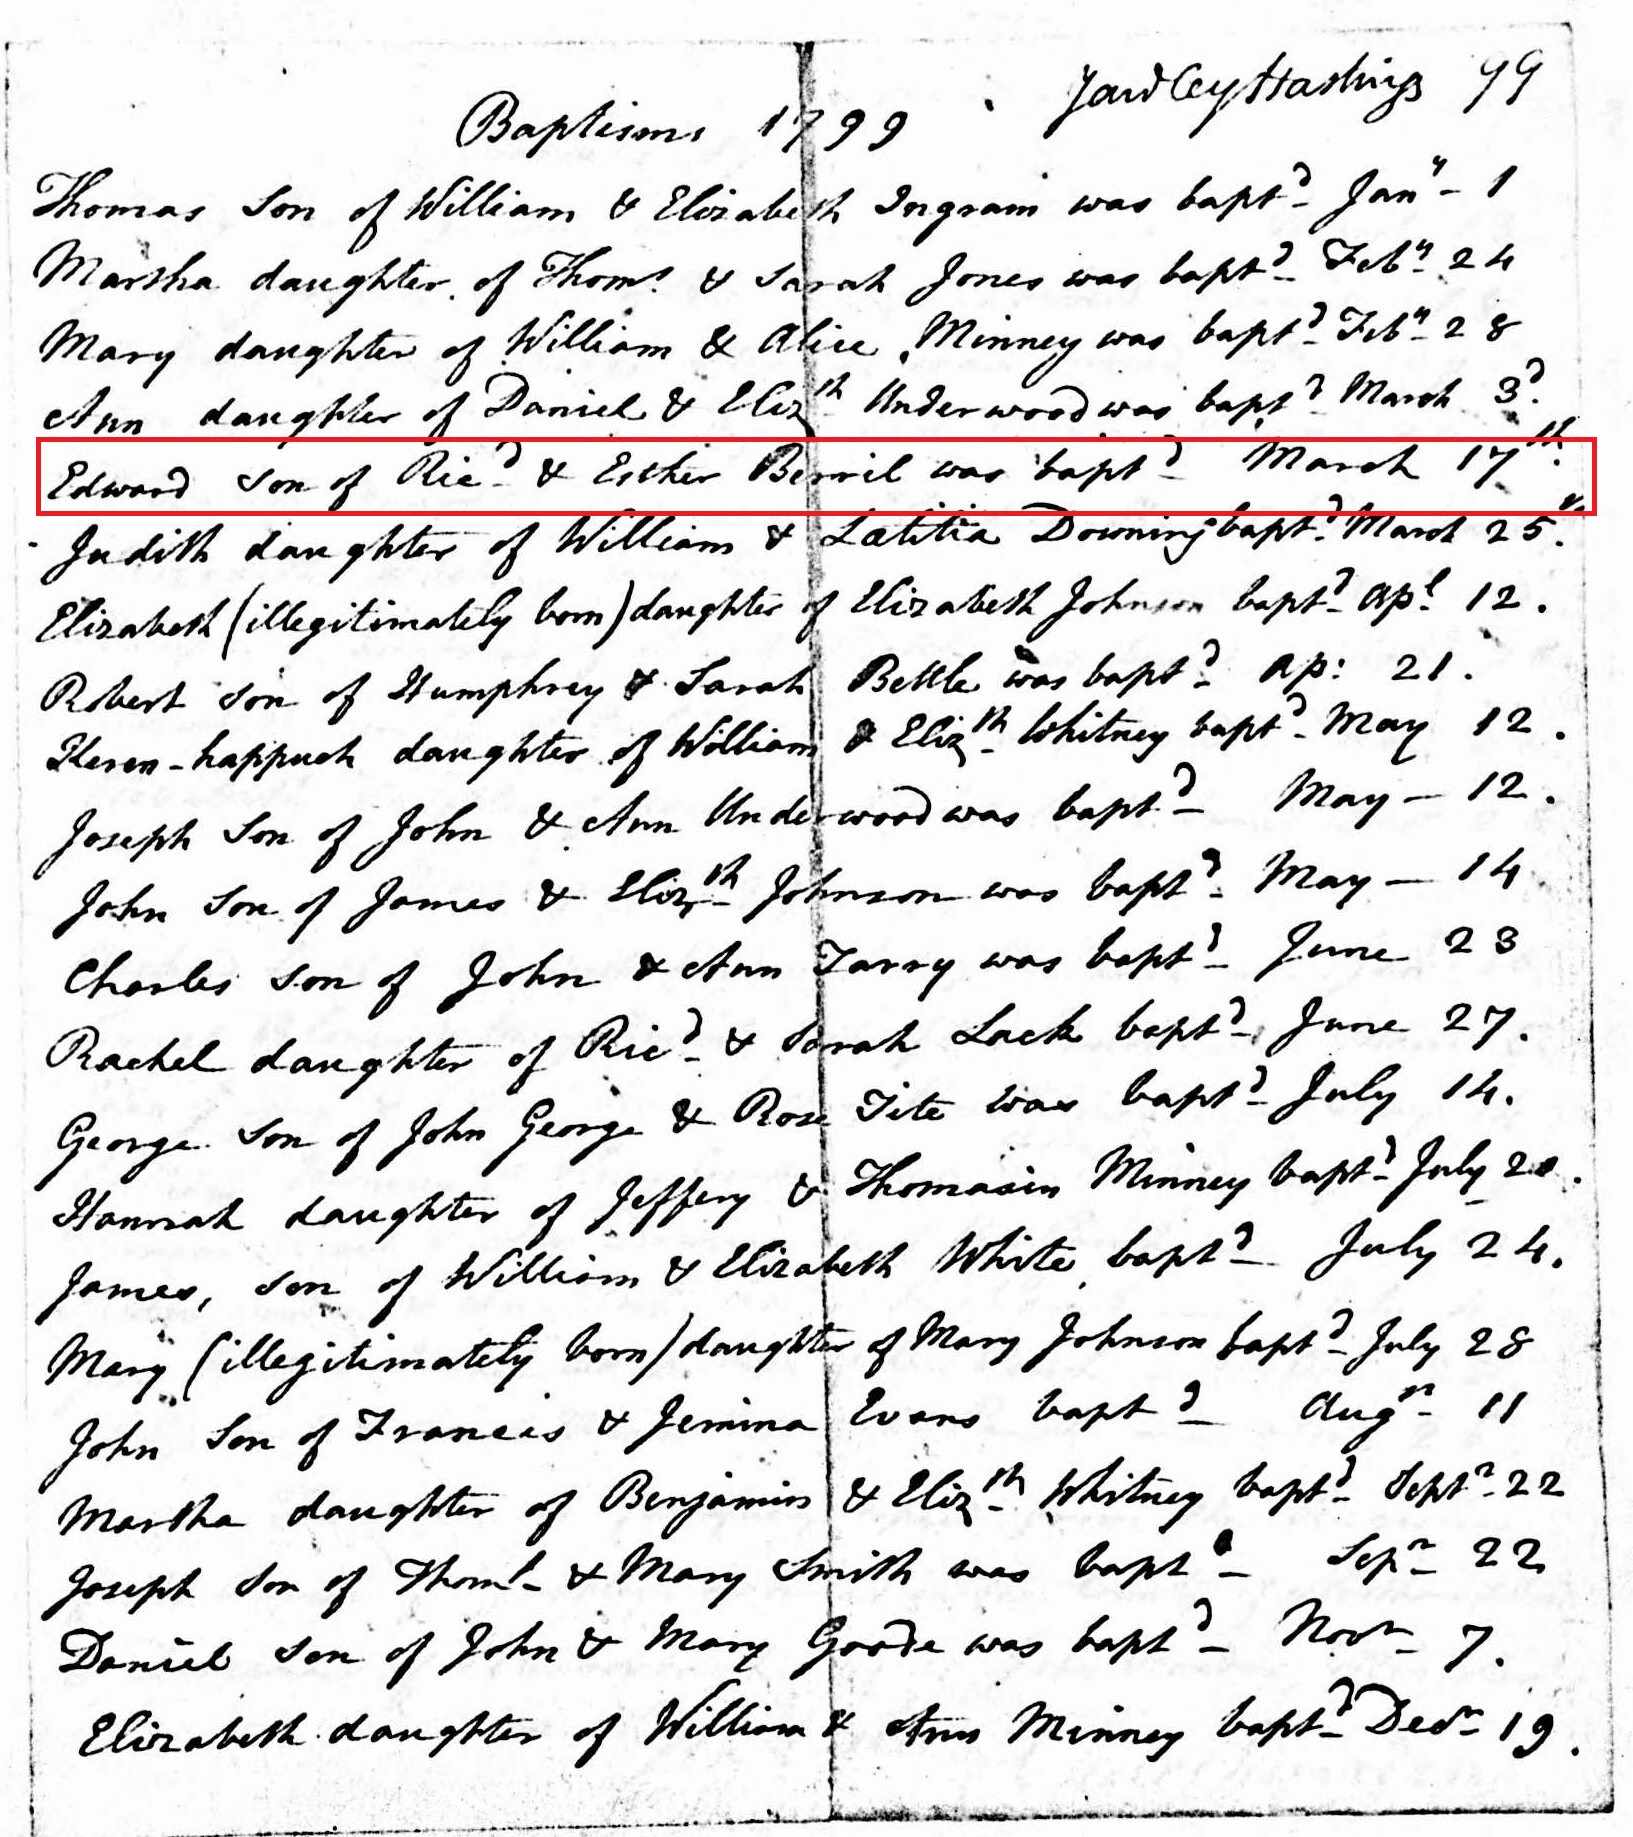 Yardley Hastings 99
Baptisms 1799
Thomas Son of William & Elizabeth Ingram was bapt.d Jan.y - 1
Martha daughter of Thom.s & Sarah Jones was bapt.d Feb.y 24
Mary daughter of William & Alice Minney was bapt.d Feb.y 28
Ann daughter of Daniel & Eliz.th Underwood was bapt.d March 3.d
Edward Son of Ric.d & Esther Berril was bapt.d March 17.th
Judith daughter of William & Lætitia Downing bapt.d March 25.th
Elizabeth (illegitimately born) daughter of Elizabeth Johnson bapt.d Ap.l 12.
Robert Son of Humphrey & Sarah Bettle was bapt.d Ap: 21.
Keren-happuch daughter of William & Eliz.th Whitney bapt.d May 12.
Joseph Son of John & Ann Underwood was bapt.d May - 12.
John Son of James & Eliz.th Johnson was bapt.d May - 14
Charles Son of John & Ann Tarry was bapt.d June 23
Rachel daughter of Ric.d & Sarah Lack bapt.d June 27.
George Son of John George & Rose Tite was bapt.d July 14.
Hannah daughter of Jeffery & Thomasin Minney bapt.d July
James, Son of William & Elizabeth White bapt.d July 24.
Mary (illegitimately born) daughter of Mary Johnson bapt.d July 28
John Son of Francis & Jemina Evans bapt.d Aug.st 11
Martha daughter of Benjamin & Eliz.th Whitney bapt.d Sept.r 22
Joseph Son of Thom.s & Mary Smith was bapt.d Sep.r 22
Daniel Son of John & Mary Goode was bapt.d Nov.r 7.
Elizabeth daughter of William & Ann Minney bapt.d Dec.r 19.